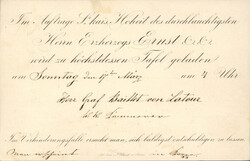 Im Auftrage S. kais. Hoheit des durchlauchtigsten
Herrn Erzherzogs Ernst &. &.
wird zu höchstdessen Tafel geladen
am Sonntag den 17ten März um 4 Uhr
Herr Graf Baillet von Latour
k. k. Kämmerer
Im Verhinderungsfalle ersucht man, sich baldigst entschuldigen zu lassen.
Man erscheint in